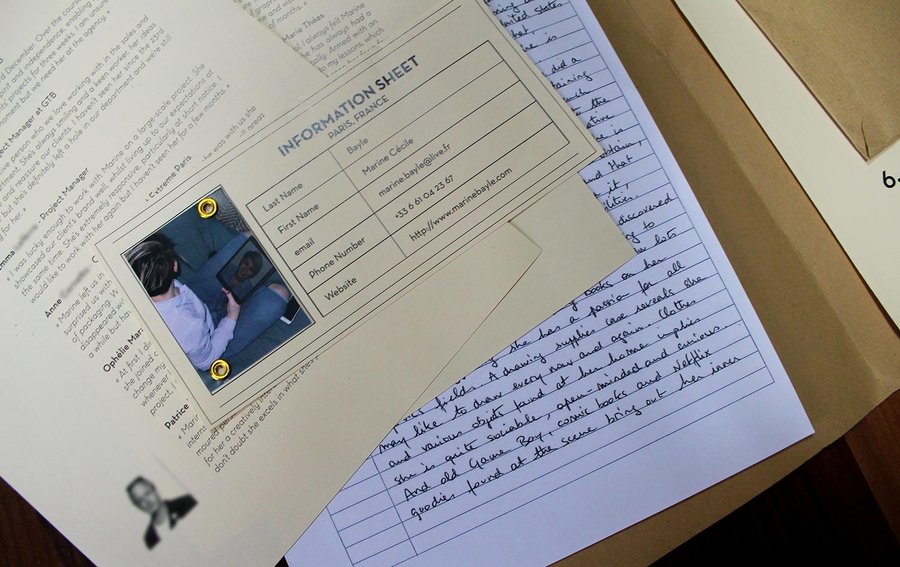 3rd December. Over the cou
point and independence, enabling
projects for three weeks. I am
moment but we need her at the agency. »
ect Manager at GTB
the person who we love working with, in the sales and
partment. She's always smiling and a keen worker, her ideas
and reassure our clients. I haven't seen her since the 23rd
but she definitely left a hole in our department and we're still
g for her. »
Emma
Project Manager
« I was lucky enough to work with Marine on a large-scale project. She
showcased our client's brand well, whilst living up to our expectations at
the same time. She's extremely responsive, particularly at short notice. I
would like to work with her again but I haven't seen her for a few months. »
Anne
- Extreme Paris
« Marine left us in
surprised us with
of packaging. W
disappeared with
a while but ha
she was with us she
all areas
Ophélie Mar
« At first I di
she joined
change my
whenever
project, I
Patrice
« Marin
interns
moured
for her a creatively
don't doubt she excels in what she
of months. »
Merle Théas
I always felt Marine
he has always had a
to my lessons, which
ally. Armed with an
INFORMATION SHEET
PARIS, FRANCE
Last Name Bayle
First Name Marine Cécile
email marine.bayle@live.fr
Phone Number +33 6 61 04 23 67
Website http://www.marinebayle.com
United States
that,
is
did a
taining
much
the
ative
is
obtain,
and that
it,
ilities.
discovered
to
lots
books on her
she has a passion for all
fields. A drawing supplies case reveals she
may like to draw every now and again. Clothes
and various objets found at her home implies
she is quite sociable, open-minded and curious.
And old Game Boy, comic books and Netflix
goodies found at the scene bring out her inner
6.